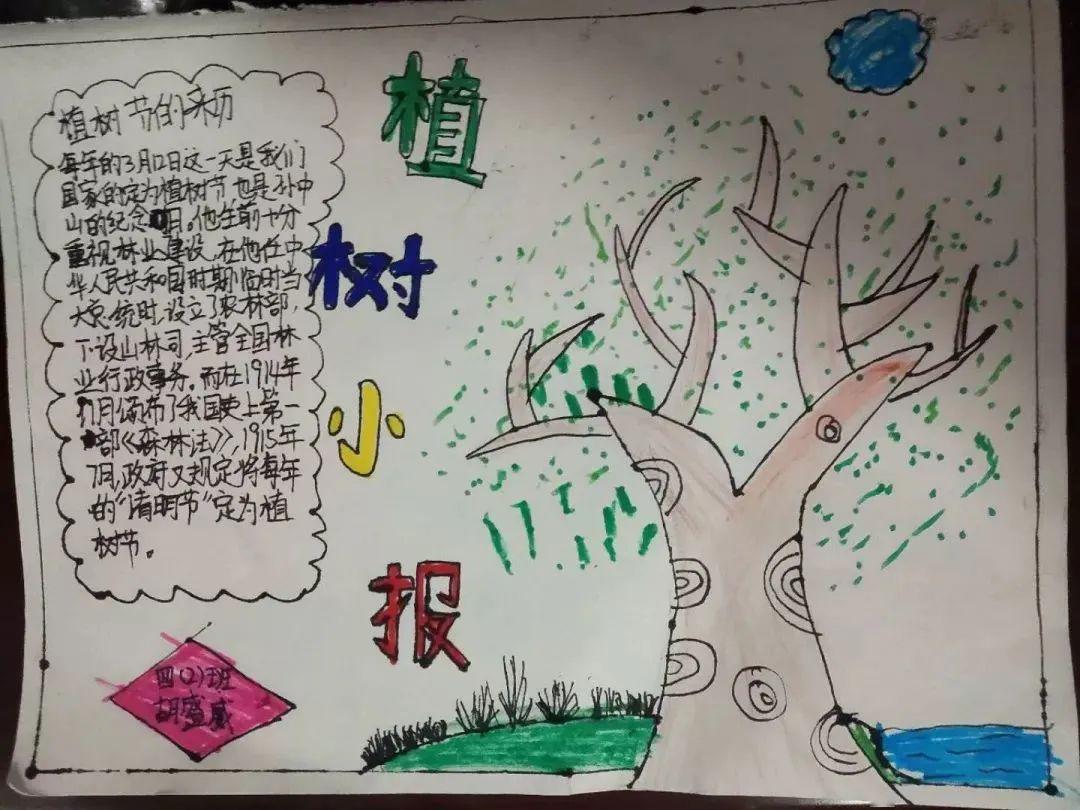 植树节的来历
每年的3月12日这一天是我们
国家的定为植树节也是孙中
山的纪念日。他生前十分
重视林业建设。在他任中
华人民共和国时期临时当
大总统时,设立了农林部,
下设山林司,主管全国林
业行政事务。而在1914年
11月颁布了我国史上第一
部《森林法》,1915年
7月,政府又规定将每年
的“清明节”定为植
树节。
植
树
小
报
四(2)班
胡盛威